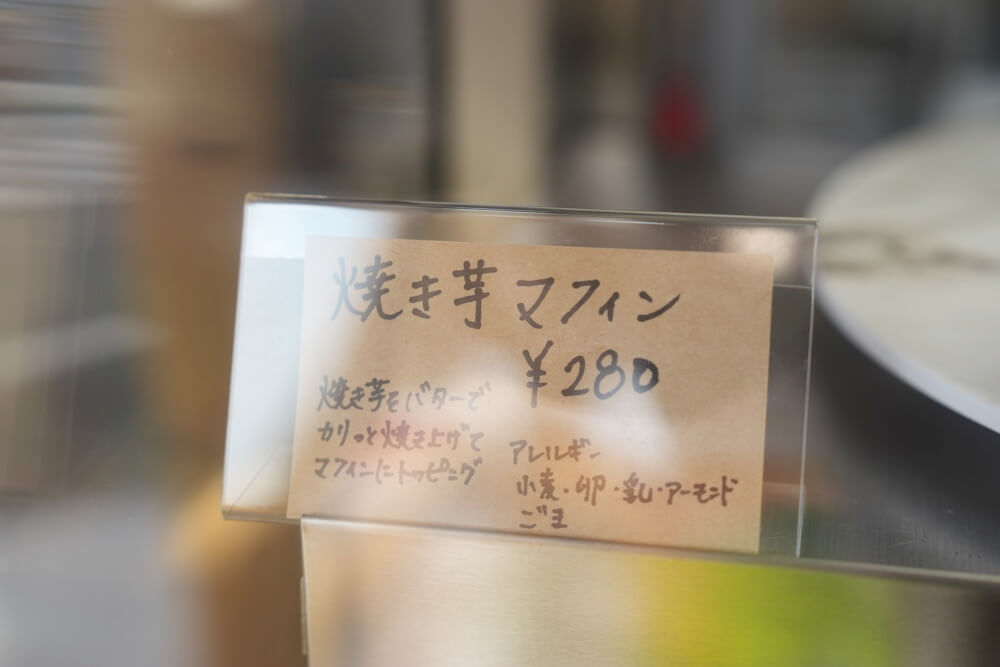 焼き芋マフィン
¥280
焼き芋をバターで
カリっと焼き上げて
マフィンにトッピング
アレルギー
小麦・卵・乳・アーモンド
ごま